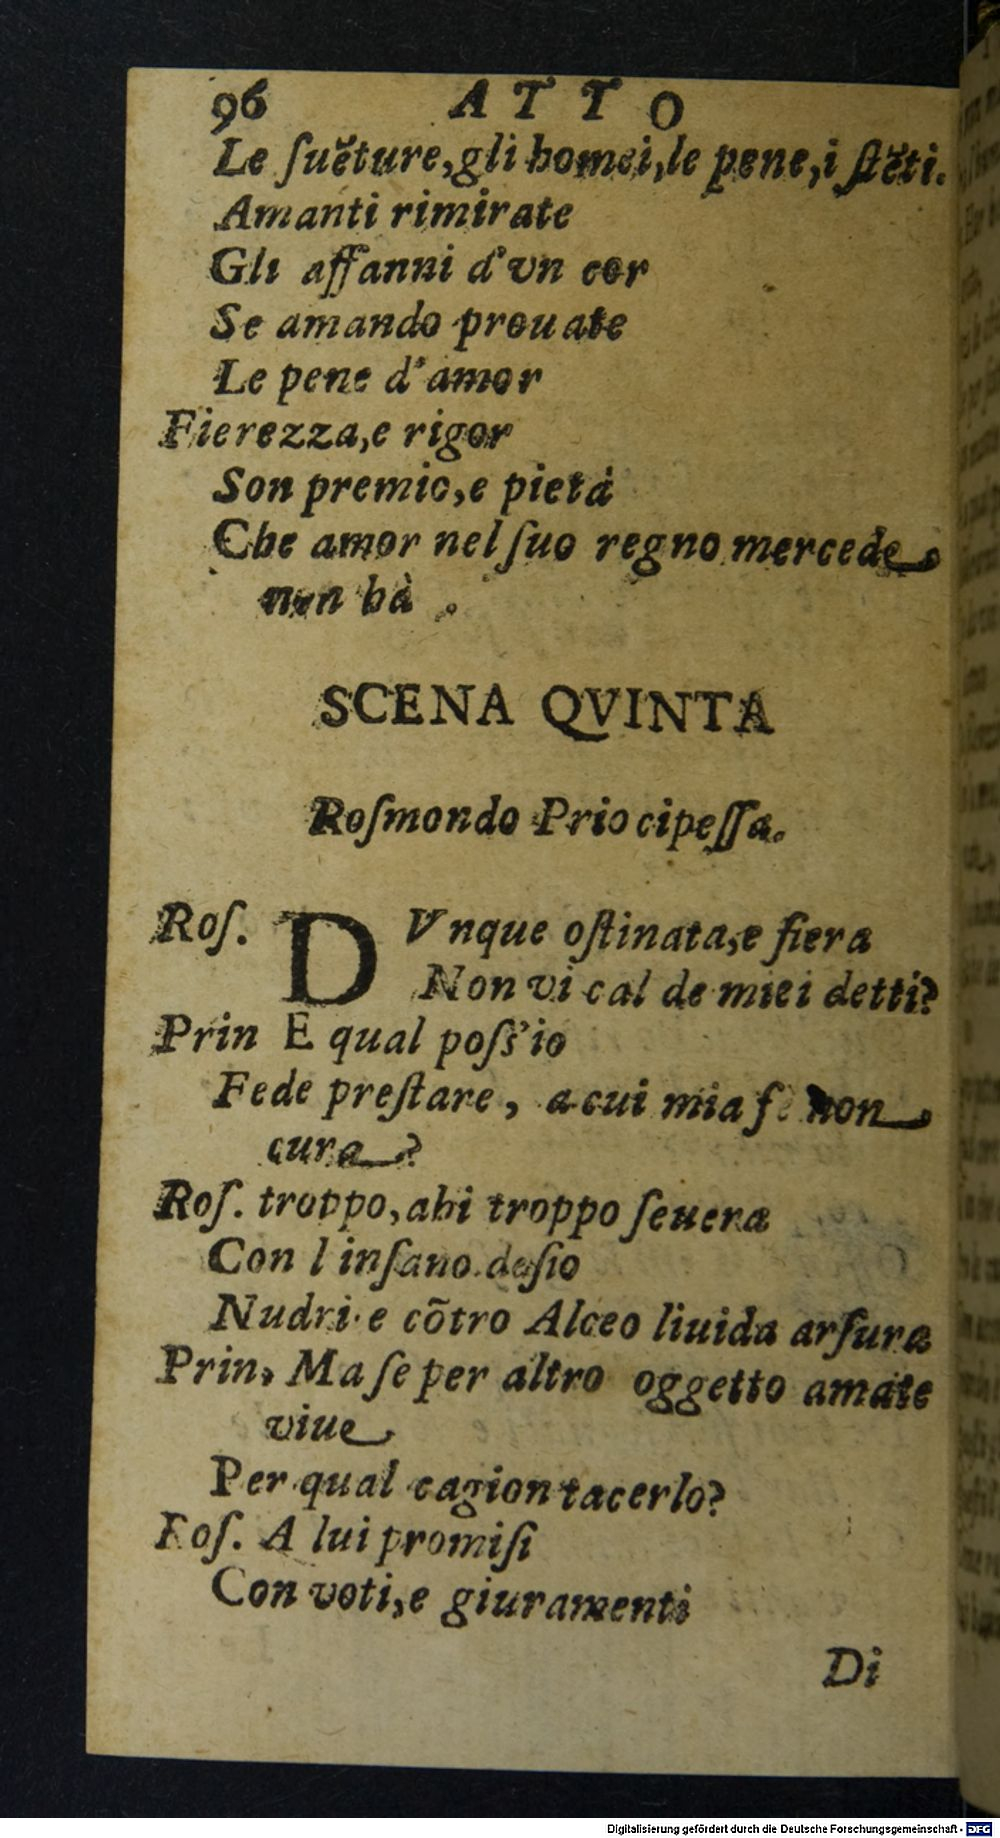 96 ATTO
Le ſuẽture, gli homei, le pene, i ſtẽti.
Amanti rimirate
Gli affanni d'vn cor
Se amando prouate
Le pene d'amor
Fierezza, e rigor
Son premio, e pietà
Che amor nel ſuo regno mercede
non hà .
SCENA QVINTA
Roſmondo Priocipeſſa.
Roſ. DVnque oſtinata, e fiera
Non vi cal de miei detti?
Prin E qual poſs'io
Fede preſtare, a cui mia fe non
cura?
Roſ. troppo, ahi troppo ſeuera
Con l inſano deſio
Nudri e cõtro Alceo liuida arſura
Prin, Ma ſe per altro oggetto amate
viue
Per qual cagion tacerlo?
Roſ. A lui promiſi
Con voti, e giuramenti
Di
Digitalisierung gefördert durch die Deutsche Forschungsgemeinschaft - DFG